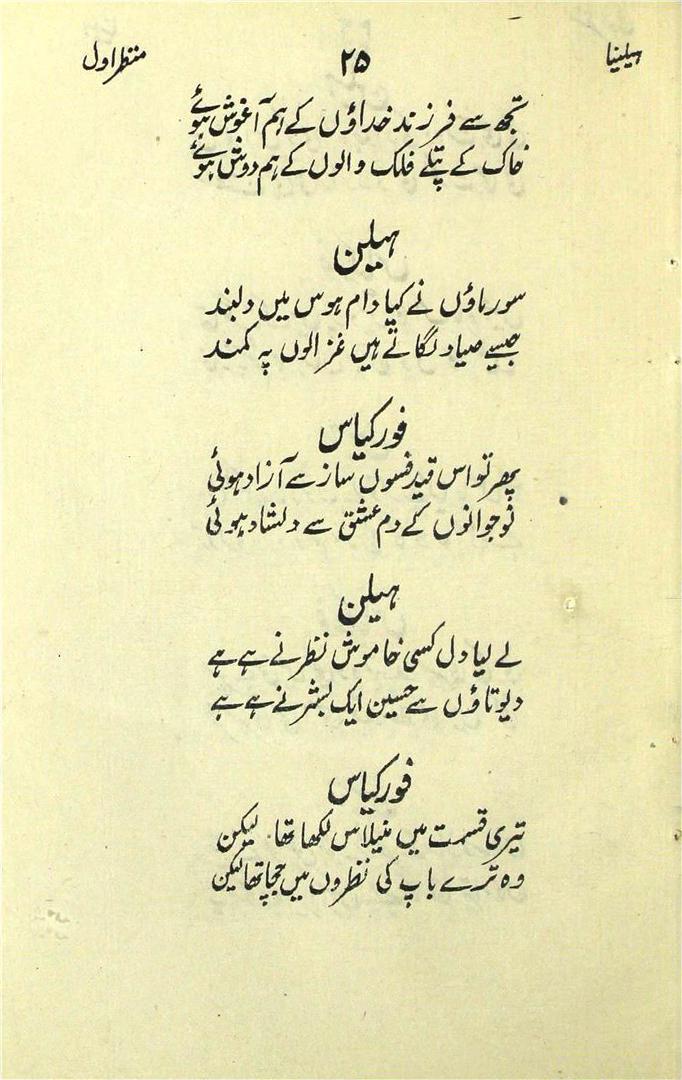 ہیلینا ۲۵ منظر اول
تجھ سے فرزند خداؤں کے ہم آغوش ہوئے
خاک کے پتلے فلک والوں کے ہم دوش ہوئے
ہیلن
سورماؤں نے کیا دام ہوس میں دلبند
جیسے صیاد لگاتے ہیں غزالوں پہ کمند
فورکیاس
پھر تو اس قید فسوں ساز سے آزاد ہوئی
نوجوانوں کے دم عشق سے دلشاد ہوئی
ہیلن
لے لیا دل کسی خاموش نظر نے ہے ہے
دیوتاؤں سے حسین ایک بشر نے ہے ہے
فورکیاس
تیری قسمت میں منیلاس لکھا تھا۔ لیکن
وہ ترے باپ کی نظروں میں جچا تھا لیکن